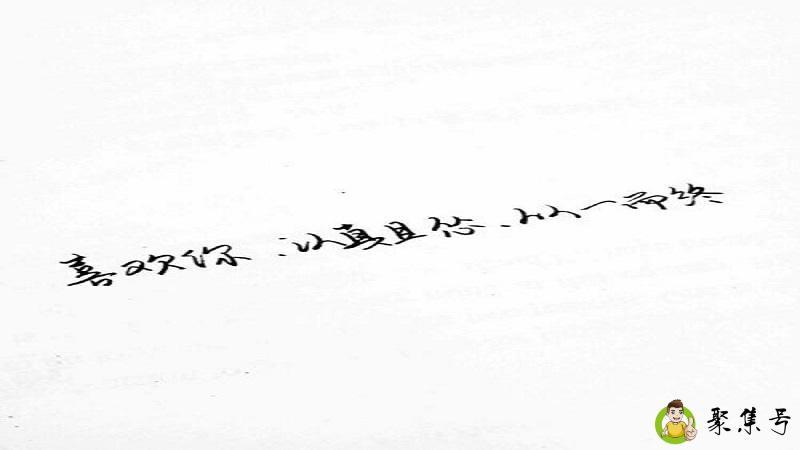 喜欢你：认真且怂、从一而终
聚集号